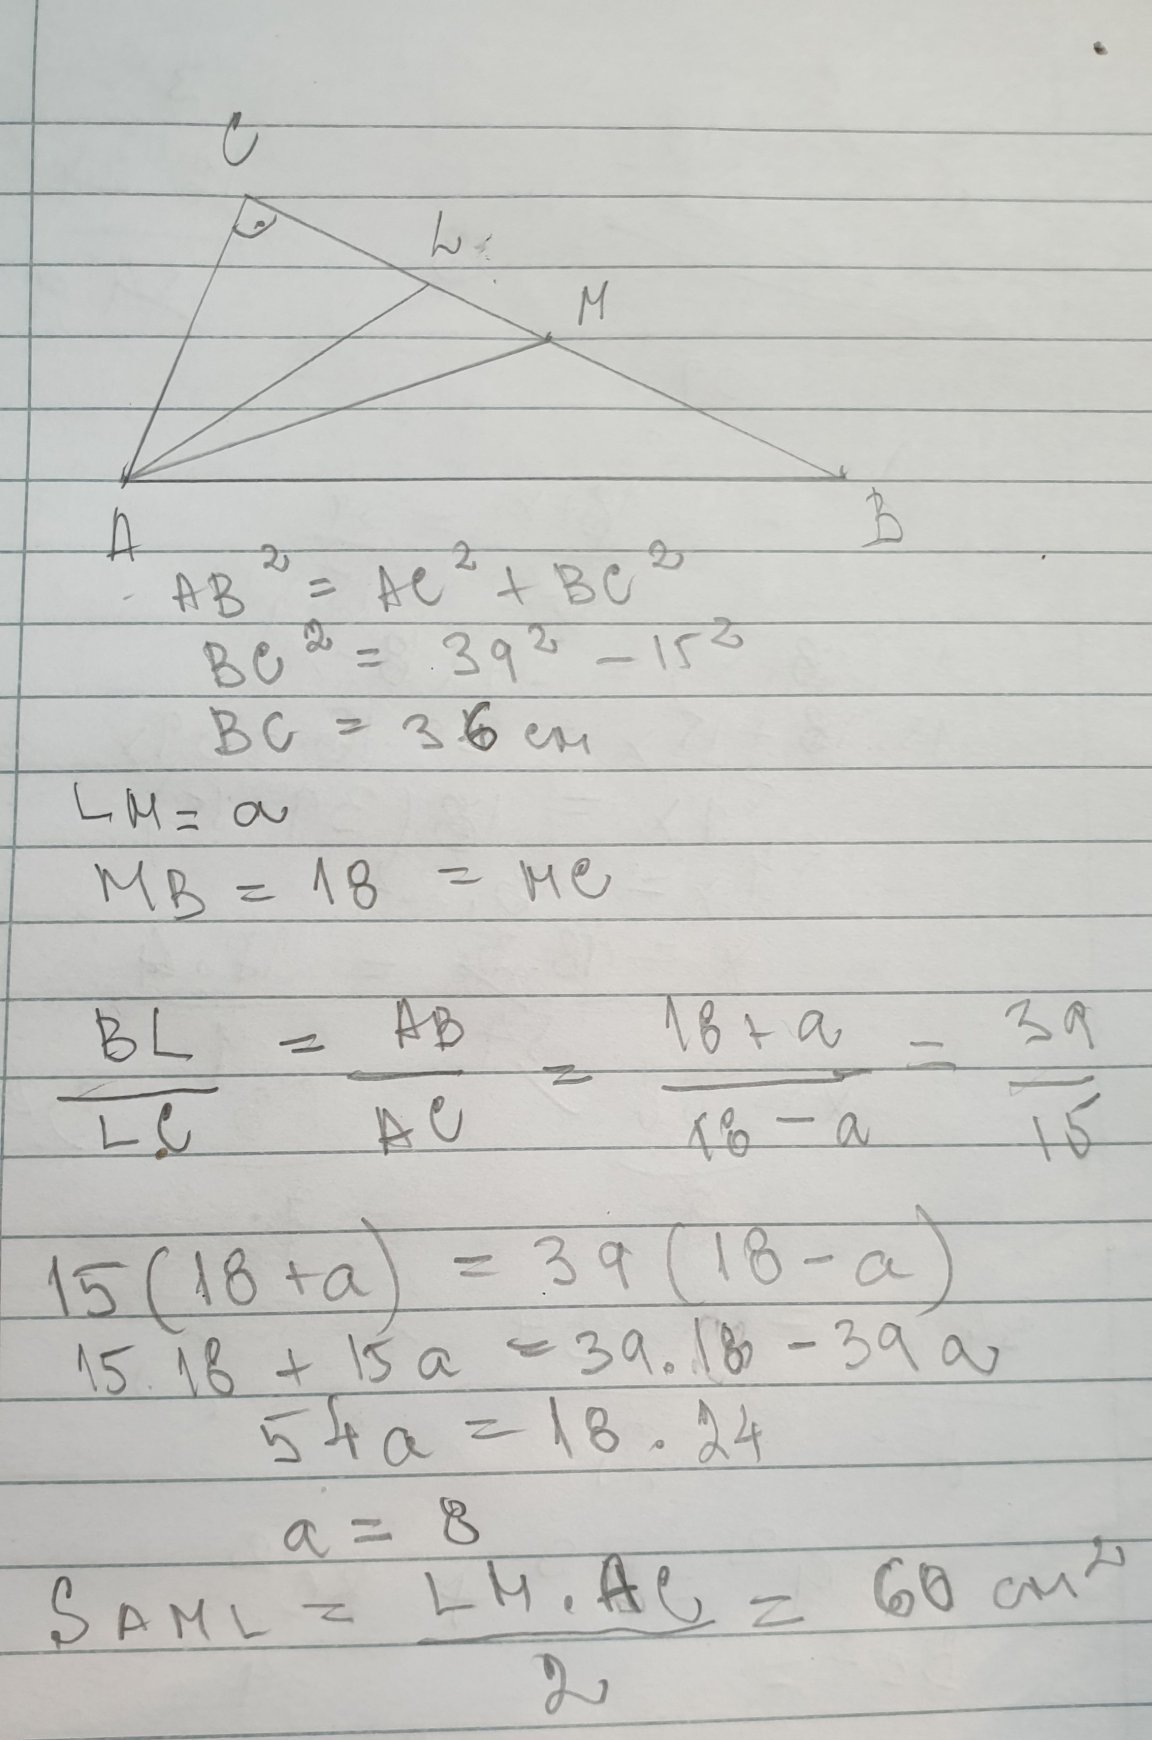 C
L
M
A
B
AB² = AC² + BC²
BC² = 39² - 15²
BC = 36 см
LM = a
MB = 18 = MC
BL/LC = AB/AC = 18+a/18-a = 39/15
15(18+a) = 39(18-a)
15.18 + 15a = 39.18 - 39a
54a = 18.24
a = 8
SAML = LM.AC/2 = 60 см²